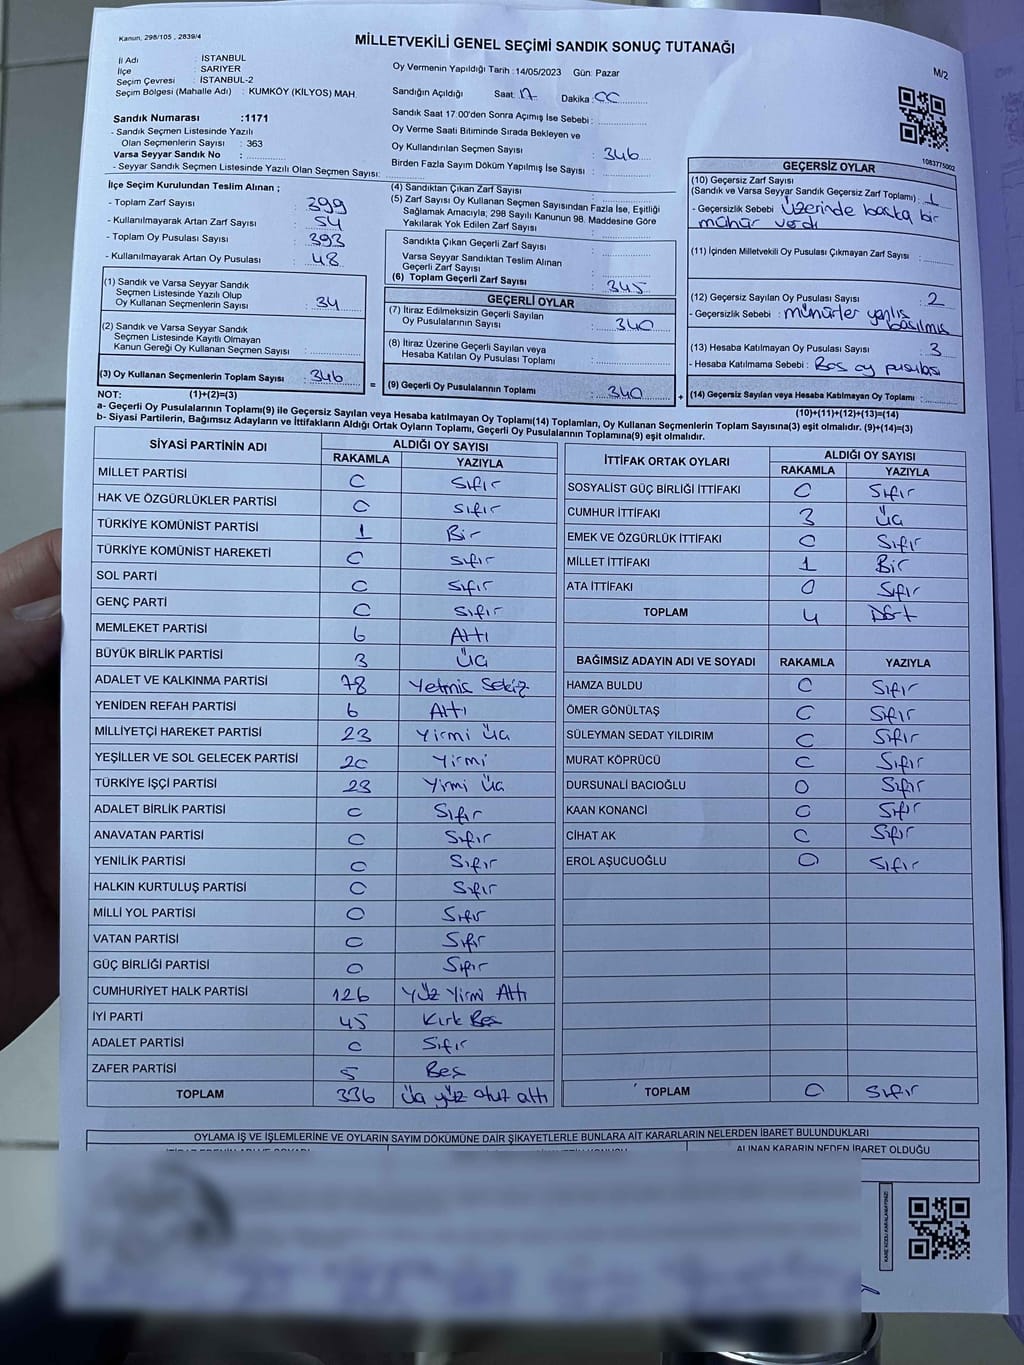 Kanun, 298/105 , 2839/4
MİLLETVEKİLİ GENEL SEÇİMİ SANDIK SONUÇ TUTANAĞI
M/2
İl Adı : İSTANBUL
İlçe : SARIYER
Seçim Çevresi : İSTANBUL-2
Seçim Bölgesi (Mahalle Adı) : KUMKÖY (KİLYOS) MAH.
Sandık Numarası :1171
- Sandık Seçmen Listesinde Yazılı
Olan Seçmenlerin Sayısı : 363
Varsa Seyyar Sandık No :
- Seyyar Sandık Seçmen Listesinde Yazılı Olan Seçmen Sayısı:
Oy Vermenin Yapıldığı Tarih : 14/05/2023 Gün: Pazar
Sandığın Açıldığı Saat: 17 Dakika : 00
Sandık Saat 17:00'den Sonra Açımış İse Sebebi :
Oy Verme Saati Bitiminde Sırada Bekleyen ve
Oy Kullandırılan Seçmen Sayısı : 346
Birden Fazla Sayım Döküm Yapılmış İse Sayısı :
1083775002
İlçe Seçim Kurulundan Teslim Alınan ;
- Toplam Zarf Sayısı : 399
- Kullanılmayarak Artan Zarf Sayısı : 54
- Toplam Oy Pusulası Sayısı : 393
- Kullanılmayarak Artan Oy Pusulası : 48
(1) Sandık ve Varsa Seyyar Sandık
Seçmen Listesinde Yazılı Olup
Oy Kullanan Seçmenlerin Sayısı : 34
(2) Sandık ve Varsa Seyyar Sandık
Seçmen Listesinde Kayıtlı Olmayan
Kanun Gereği Oy Kullanan Seçmen Sayısı :
(3) Oy Kullanan Seçmenlerin Toplam Sayısı : 346
(4) Sandıktan Çıkan Zarf Sayısı :
(5) Zarf Sayısı Oy Kullanan Seçmen Sayısından Fazla İse, Eşitliği
Sağlamak Amacıyla; 298 Sayılı Kanunun 98. Maddesine Göre
Yakılarak Yok Edilen Zarf Sayısı :
Sandıkta Çıkan Geçerli Zarf Sayısı :
Varsa Seyyar Sandıktan Teslim Alınan
Geçerli Zarf Sayısı :
(6) Toplam Geçerli Zarf Sayısı : 345
GEÇERLİ OYLAR
(7) İtiraz Edilmeksizin Geçerli Sayılan
Oy Pusulalarının Sayısı : 340
(8) İtiraz Üzerine Geçerli Sayılan veya
Hesaba Katılan Oy Pusulası Toplamı :
= (9) Geçerli Oy Pusulalarının Toplamı : 340 +
GEÇERSİZ OYLAR
(10) Geçersiz Zarf Sayısı
(Sandık ve Varsa Seyyar Sandık Geçersiz Zarf Toplamı) : 1
- Geçersizlik Sebebi : Üzerinde başka bir
mühür vardı
(11) İçinden Milletvekili Oy Pusulası Çıkmayan Zarf Sayısı :
(12) Geçersiz Sayılan Oy Pusulası Sayısı : 2
- Geçersizlik Sebebi : mühürler yanlış
basılmış
(13) Hesaba Katılmayan Oy Pusulası Sayısı : 3
- Hesaba Katılmama Sebebi : Boş oy pusulası
(14) Geçersiz Sayılan veya Hesaba Katılmayan Oy Toplamı :
(10)+(11)+(12)+(13)=(14)
NOT: (1)+(2)=(3)
a- Geçerli Oy Pusulalarının Toplamı(9) ile Geçersiz Sayılan veya Hesaba katılmayan Oy Toplamı(14) Toplamları, Oy Kullanan Seçmenlerin Toplam Sayısına(3) eşit olmalıdır. (9)+(14)=(3)
b- Siyasi Partilerin, Bağımsız Adayların ve İttifakların Aldığı Ortak Oyların Toplamı, Geçerli Oy Pusulalarının Toplamına(9) eşit olmalıdır.
SİYASİ PARTİNİN ADI ALDIĞI OY SAYISI
RAKAMLA YAZIYLA
MİLLET PARTİSİ 0 Sıfır
HAK VE ÖZGÜRLÜKLER PARTİSİ 0 Sıfır
TÜRKİYE KOMÜNİST PARTİSİ 1 Bir
TÜRKİYE KOMÜNİST HAREKETİ 0 Sıfır
SOL PARTİ 0 Sıfır
GENÇ PARTİ 0 Sıfır
MEMLEKET PARTİSİ 6 Altı
BÜYÜK BİRLİK PARTİSİ 3 Üç
ADALET VE KALKINMA PARTİSİ 78 Yetmiş Sekiz
YENİDEN REFAH PARTİSİ 6 Altı
MİLLİYETÇİ HAREKET PARTİSİ 23 Yirmi Üç
YEŞİLLER VE SOL GELECEK PARTİSİ 20 Yirmi
TÜRKİYE İŞÇİ PARTİSİ 23 Yirmi Üç
ADALET BİRLİK PARTİSİ 0 Sıfır
ANAVATAN PARTİSİ 0 Sıfır
YENİLİK PARTİSİ 0 Sıfır
HALKIN KURTULUŞ PARTİSİ 0 Sıfır
MİLLİ YOL PARTİSİ 0 Sıfır
VATAN PARTİSİ 0 Sıfır
GÜÇ BİRLİĞİ PARTİSİ 0 Sıfır
CUMHURİYET HALK PARTİSİ 126 Yüz Yirmi Altı
İYİ PARTİ 45 Kırk Beş
ADALET PARTİSİ 0 Sıfır
ZAFER PARTİSİ 5 Beş
TOPLAM 336 Üç yüz otuz altı
İTTİFAK ORTAK OYLARI ALDIĞI OY SAYISI
RAKAMLA YAZIYLA
SOSYALİST GÜÇ BİRLİĞİ İTTİFAKI 0 Sıfır
CUMHUR İTTİFAKI 3 Üç
EMEK VE ÖZGÜRLÜK İTTİFAKI 0 Sıfır
MİLLET İTTİFAKI 1 Bir
ATA İTTİFAKI 0 Sıfır
TOPLAM 4 Dört
BAĞIMSIZ ADAYIN ADI VE SOYADI RAKAMLA YAZIYLA
HAMZA BULDU 0 Sıfır
ÖMER GÖNÜLTAŞ 0 Sıfır
SÜLEYMAN SEDAT YILDIRIM 0 Sıfır
MURAT KÖPRÜCÜ 0 Sıfır
DURSUNALİ BACIOĞLU 0 Sıfır
KAAN KONANCİ 0 Sıfır
CİHAT AK 0 Sıfır
EROL AŞUCUOĞLU 0 Sıfır
TOPLAM 0 Sıfır
OYLAMA İŞ VE İŞLEMLERİNE VE OYLARIN SAYIM DÖKÜMÜNE DAİR ŞİKAYETLERLE BUNLARA AİT KARARLARIN NELERDEN İBARET BULUNDUKLARI
ALINAN KARARIN NEDEN İBARET OLDUĞU
KARE KODU KARALAMAYINIZ!